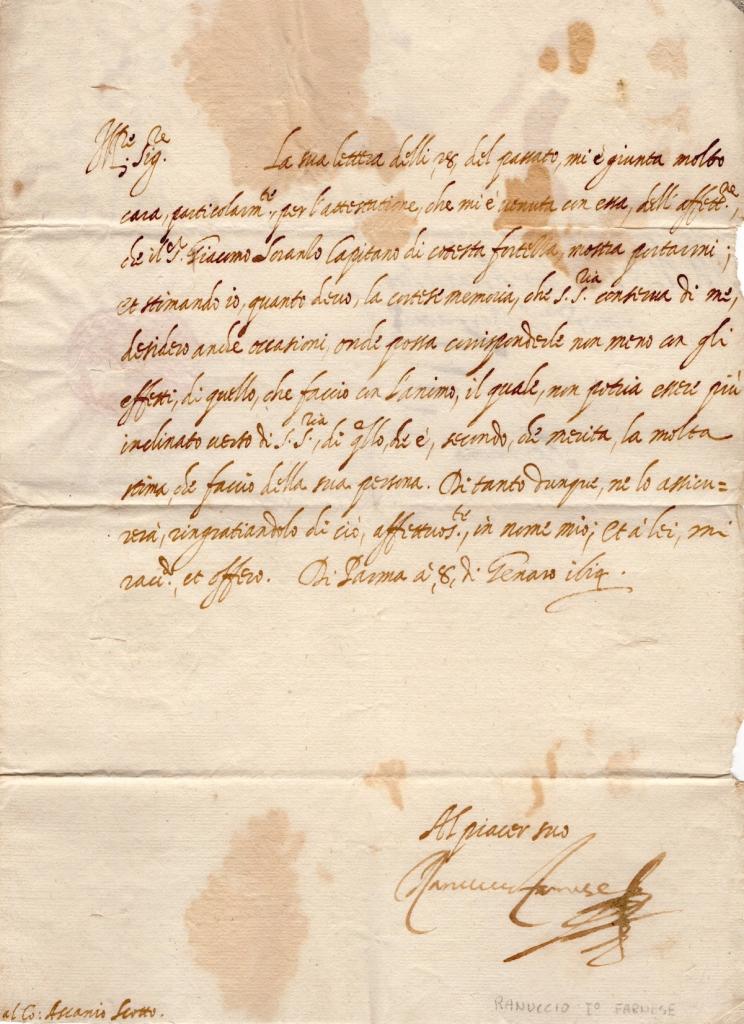 Ill.re Sig.re La sua lettera delli, 28, del passato, mi è giunta molto
cara, particolarm.te, per l'attestatione, che mi è venuta con essa, dell'affett.ne,
che il S.r Giacomo Capitano di cotesta fortezza, mostra portarmi;
et stimando io, quanto devo, la cortese memoria, che S. S.ria conserva di me,
desidero anche occasioni, onde possa corrisponderle non meno con gli
effetti, di quello, che faccio con l'animo, il quale, non potria essere più
inclinato verso di S. S.ria, di q.llo, che è, secondo, che merita, la molta
stima, che faccio della sua persona. Di tanto dunque, ne lo assicu=
rerà, ringratiandolo di ciò, affettuos.te, in nome mio; et à lei, mi
racc.do, et offero. Di Parma à, 8, di Genaro
Al piacer suo
Ranuccio Farnese
al Co: Ascanio Scotto.
RANUCCIO I° FARNESE